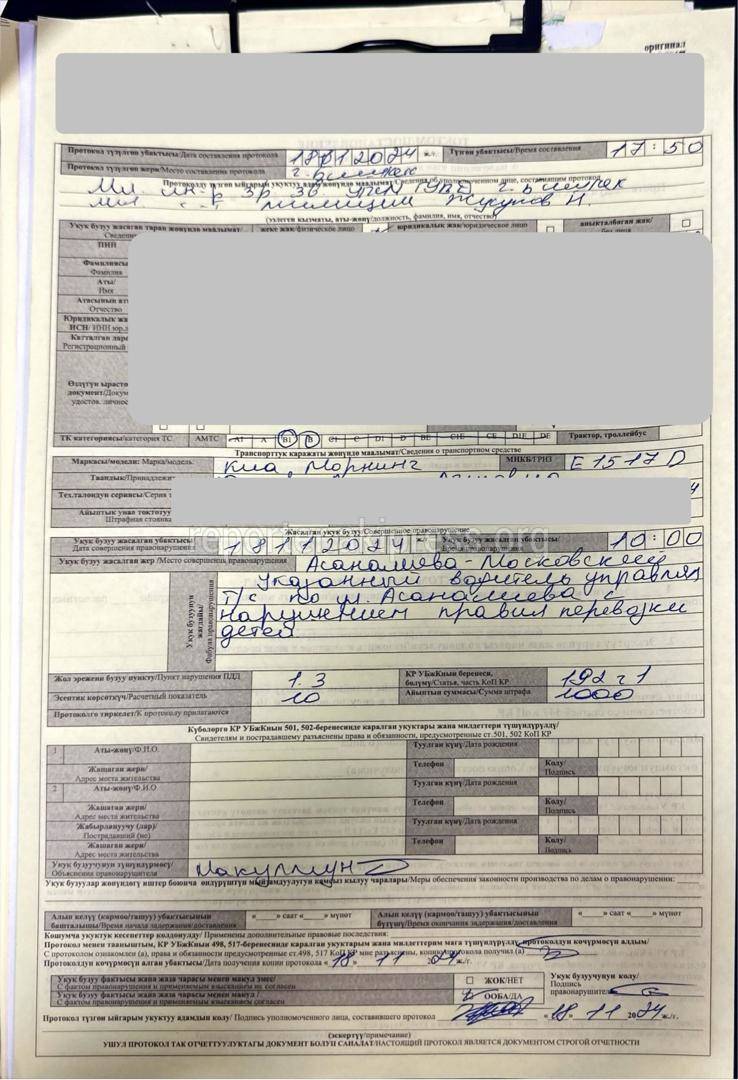 оригинал
Протокол түзүлгөн убактысы/Дата составления протокола 18012024 ж./г. Түзгөн убактысы/Время составления 17:50
Протокол түзүлгөн жери/Место составления протокола г. Бишкек
Протоколду түзгөн ыйгарым укуктуу адам жөнүндө маалымат/Сведения об уполномоченном лице, составившим протокол
Мл. ин-р ЗР ЗВ УПСМ ГУВД г. Бишкек
мл. милиции Жукупов Н.
(ээлеген кызматы, аты-жөнү/должность, фамилия, имя, отчество)
Укук бузуу жасаган тарап жөнүндө маалымат/ жеке жак/физическое лицо юридикалык жак/юридическое лицо аныкталбаган жак/
Сведения
ПИН
Фамилиясы
Фамилия
Аты/
Имя
Атасынын ат
Отчество
Юридикалык жа
ИСН/ ИНН юр.л
Катталган даре
Регистрационный
Өздүгүн ырасто
документ/Докум
удостов. личнос
ТК категориясы/категория ТС АМТС A1 A B1 B C1 C D1 D BE C1E CE D1E DE Трактор, троллейбус
Транспорттук каражаты жөнүндө маалымат/Сведения о транспортном средстве
Маркасы/модели: Марка/модель Киа, Морнинг МНКБ/ГРНЗ E1517D
Таандык/Принадлежит
Тех.талондун сериясы/Серия т
Айыптык унаа токтотуу
Штрафная стоянка
reporter.akipress.org
Жасалган укук бузуу/Совершенное правонарушение
Укук бузуу жасалган убактысы/ 18112024 ж./г. Укук бузуу жасалган убактысы/ 10:00
Дата совершения правонарушения Время правонарушения
Укук бузуу жасалган жер/Место совершения правонарушения Асаналиева-Московский
Укук бузуунун жагдайы/ Фабула правонарушения
Указанный водитель управлял
т/с по ул. Асаналиева с
нарушением правил перевозки
детей
Жол эрежени бузуу пункту/Пункт нарушения ПДД 1.3 КР УБжКнын беренеси, бөлүмү/Статья, часть КоП КР 192 ч 1
Эсептик көрсөткүч/Расчетный показатель 10 Айыптын суммасы/Сумма штрафа 1000
Протоколго тиркелет/К протоколу прилагаются
Күбөлөргө КР УБжКнын 501, 502-беренесинде каралган укуктары жана милдеттери түшүндүрүлдү/
Свидетелям и пострадавшему разъяснены права и обязанности, предусмотренные ст.501, 502 КоП КР
1 Аты-жөнү/Ф.И.О. Туулган күнү/Дата рождения
Жашаган жери/
Адрес места жительства Телефон Колу/
Подпись
2 Аты-жөнү/Ф.И.О Туулган күнү/Дата рождения
Жашаган жери/
Адрес места жительства Телефон Колу/
Подпись
Жабырлануучу (лар)/
Пострадавший (не) Туулган күнү/Дата рождения
Жашаган жери/
Адрес места жительства Телефон Колу/
Подпись
Укук бузуучунун түшүндүрмөсү/
Объяснения правонарушителя Макулмун
Укук бузуулар жөнүндөгү иштер боюнча өндүрүштүн мыйзамдуулугун камсыз кылуу чаралары/Меры обеспечения законности производства по делам о правонарушении:
Алып келүү (кармоо/ташуу) убактысынын
башталышы/Время начала задержания/доставления «___» саат «___» мүнөт
Алып келүү (кармоо/ташуу) убактысынын
бүтүшү/Время окончания задержания/доставления «___» саат «___» мүнөт
Кошумча укуктук кесепеттер колдонулду/ Применены дополнительные правовые последствия:
Протокол менен тааныштым, КР УБжКнын 498, 517-беренесинде каралган укуктарым жана милдеттерим мага түшүндүрүлдү, протоколдун көчүрмөсүн алдым/
С протоколом ознакомлен (а), права и обязанности предусмотренные ст.498, 517 КоП КР мне разъяснены, копию протокола получил (а)
Протоколдун көчүрмөсүн алган убактысы/Дата получения копии протокола « 18 » 11 2024 ж./г.
Укук бузуу фактысы жана жаза чарасы менен макул эмес/
С фактом правонарушения и применяемым взысканием не согласен ЖОК/НЕТ
Укук бузуу фактысы жана жаза чарасы менен макул /
С фактом правонарушения и применяемым взысканием согласен ООБА/ДА
Укук бузуучунун колу/
Подпись
правонарушителя
Протокол түзгөн ыйгарым укуктуу адамдын колу/ Подпись уполномоченного лица, составившего протокол « 18 » 11 2024 ж./г.
(эскертүү/примечание)
УШУЛ ПРОТОКОЛ ТАК ОТЧЕТТУУЛУКТАГЫ ДОКУМЕНТ БОЛУП САНАЛАТ/НАСТОЯЩИЙ ПРОТОКОЛ ЯВЛЯЕТСЯ ДОКУМЕНТОМ СТРОГОЙ ОТЧЕТНОСТИ